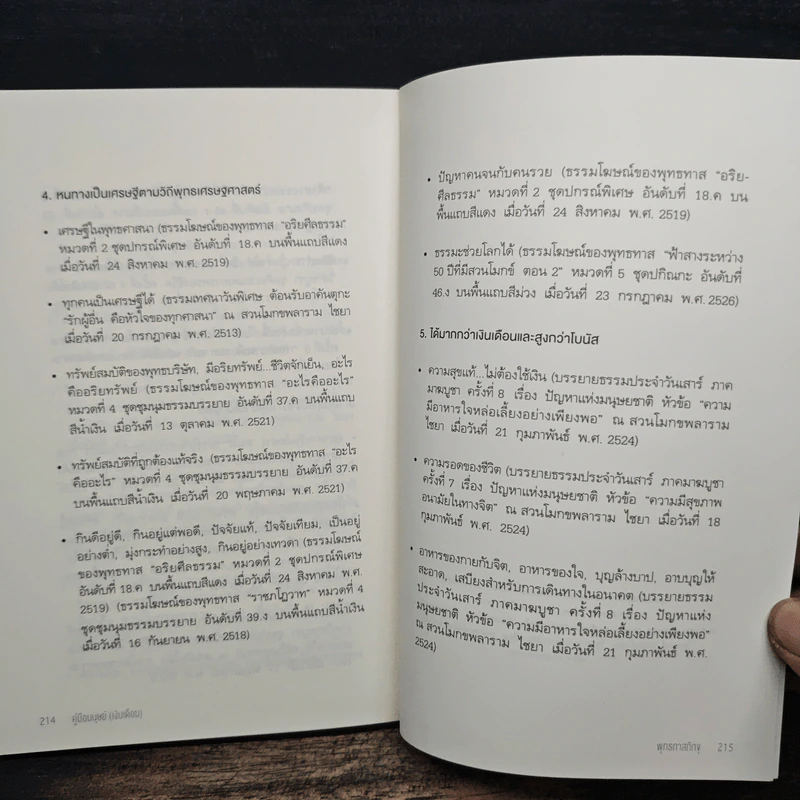 4. หนทางเป็นเศรษฐีตามวิถีพุทธเศรษฐศาสตร์
• เศรษฐีในพุทธศาสนา (ธรรมโฆษณ์ของพุทธทาส “อริยศีลธรรม”
หมวดที่ 2 ชุดปกรณ์พิเศษ อันดับที่ 18.ค บนพื้นแถบสีแดง
เมื่อวันที่ 24 สิงหาคม พ.ศ. 2519)
• ทุกคนเป็นเศรษฐีได้ (ธรรมเทศนาวันพิเศษ ต้อนรับอาคันตุกะ
“รักผู้อื่น คือหัวใจของทุกศาสนา” ณ สวนโมกขพลาราม ไชยา
เมื่อวันที่ 20 กรกฎาคม พ.ศ. 2513)
• ทรัพย์สมบัติของพุทธบริษัท, มีอริยทรัพย์...ชีวิตจักเย็น, อะไร
คืออริยทรัพย์ (ธรรมโฆษณ์ของพุทธทาส “อะไรคืออะไร”
หมวดที่ 4 ชุดชุมนุมธรรมบรรยาย อันดับที่ 37.ค บนพื้นแถบ
สีน้ำเงิน เมื่อวันที่ 13 ตุลาคม พ.ศ. 2521)
• ทรัพย์สมบัติที่ถูกต้องแท้จริง (ธรรมโฆษณ์ของพุทธทาส “อะไร
คืออะไร” หมวดที่ 4 ชุดชุมนุมธรรมบรรยาย อันดับที่ 37.ค
บนพื้นแถบสีน้ำเงิน เมื่อวันที่ 20 พฤษภาคม พ.ศ. 2521)
• กินดีอยู่ดี, กินอยู่แต่พอดี, ปัจจัยแท้, ปัจจัยเทียม, เป็นอยู่
อย่างต่ำ, มุ่งกระทำอย่างสูง, กินอยู่อย่างเทวดา (ธรรมโฆษณ์
ของพุทธทาส “อริยศีลธรรม” หมวดที่ 2 ชุดปกรณ์พิเศษ
อันดับที่ 18.ค บนพื้นแถบสีแดง เมื่อวันที่ 24 สิงหาคม พ.ศ.
2519) (ธรรมโฆษณ์ของพุทธทาส “ราชภโฏวาท” หมวดที่ 4
ชุดชุมนุมธรรมบรรยาย อันดับที่ 39.ง บนพื้นแถบสีน้ำเงิน
เมื่อวันที่ 16 กันยายน พ.ศ. 2518)
214 คู่มือมนุษย์ (เงินเดือน)
• ปัญหาคนจนกับคนรวย (ธรรมโฆษณ์ของพุทธทาส “อริย-
ศีลธรรม” หมวดที่ 2 ชุดปกรณ์พิเศษ อันดับที่ 18.ค บน
พื้นแถบสีแดง เมื่อวันที่ 24 สิงหาคม พ.ศ. 2519)
• ธรรมะช่วยโลกได้ (ธรรมโฆษณ์ของพุทธทาส “ฟ้าสางระหว่าง
50 ปีที่มีสวนโมกข์ ตอน 2” หมวดที่ 5 ชุดปกิณกะ อันดับที่
46.ง บนพื้นแถบสีม่วง เมื่อวันที่ 23 กรกฎาคม พ.ศ. 2526)
5. ได้มากกว่าเงินเดือนและสูงกว่าโบนัส
• ความสุขแท้...ไม่ต้องใช้เงิน (บรรยายธรรมประจำวันเสาร์ ภาค
มาฆบูชา ครั้งที่ 8 เรื่อง ปัญหาแห่งมนุษยชาติ หัวข้อ “ความ
มีอาหารใจหล่อเลี้ยงอย่างเพียงพอ” ณ สวนโมกขพลาราม
ไชยา เมื่อวันที่ 21 กุมภาพันธ์ พ.ศ. 2524)
• ความรอดของชีวิต (บรรยายธรรมประจำวันเสาร์ ภาคมาฆบูชา
ครั้งที่ 7 เรื่อง ปัญหาแห่งมนุษยชาติ หัวข้อ “ความมีสุขภาพ
อนามัยในทางจิต” ณ สวนโมกขพลาราม ไชยา เมื่อวันที่ 18
กุมภาพันธ์ พ.ศ. 2524)
• อาหารของกายกับจิต, อาหารของใจ, บุญล้างบาป, อาบบุญให้
สะอาด, เสบียงสำหรับการเดินทางในอนาคต (บรรยายธรรม
ประจำวันเสาร์ ภาคมาฆบูชา ครั้งที่ 8 เรื่อง ปัญหาแห่ง
มนุษยชาติ หัวข้อ “ความมีอาหารใจหล่อเลี้ยงอย่างเพียงพอ”
ณ สวนโมกขพลาราม ไชยา เมื่อวันที่ 21 กุมภาพันธ์ พ.ศ.
2524)
พุทธทาสภิกขุ 215